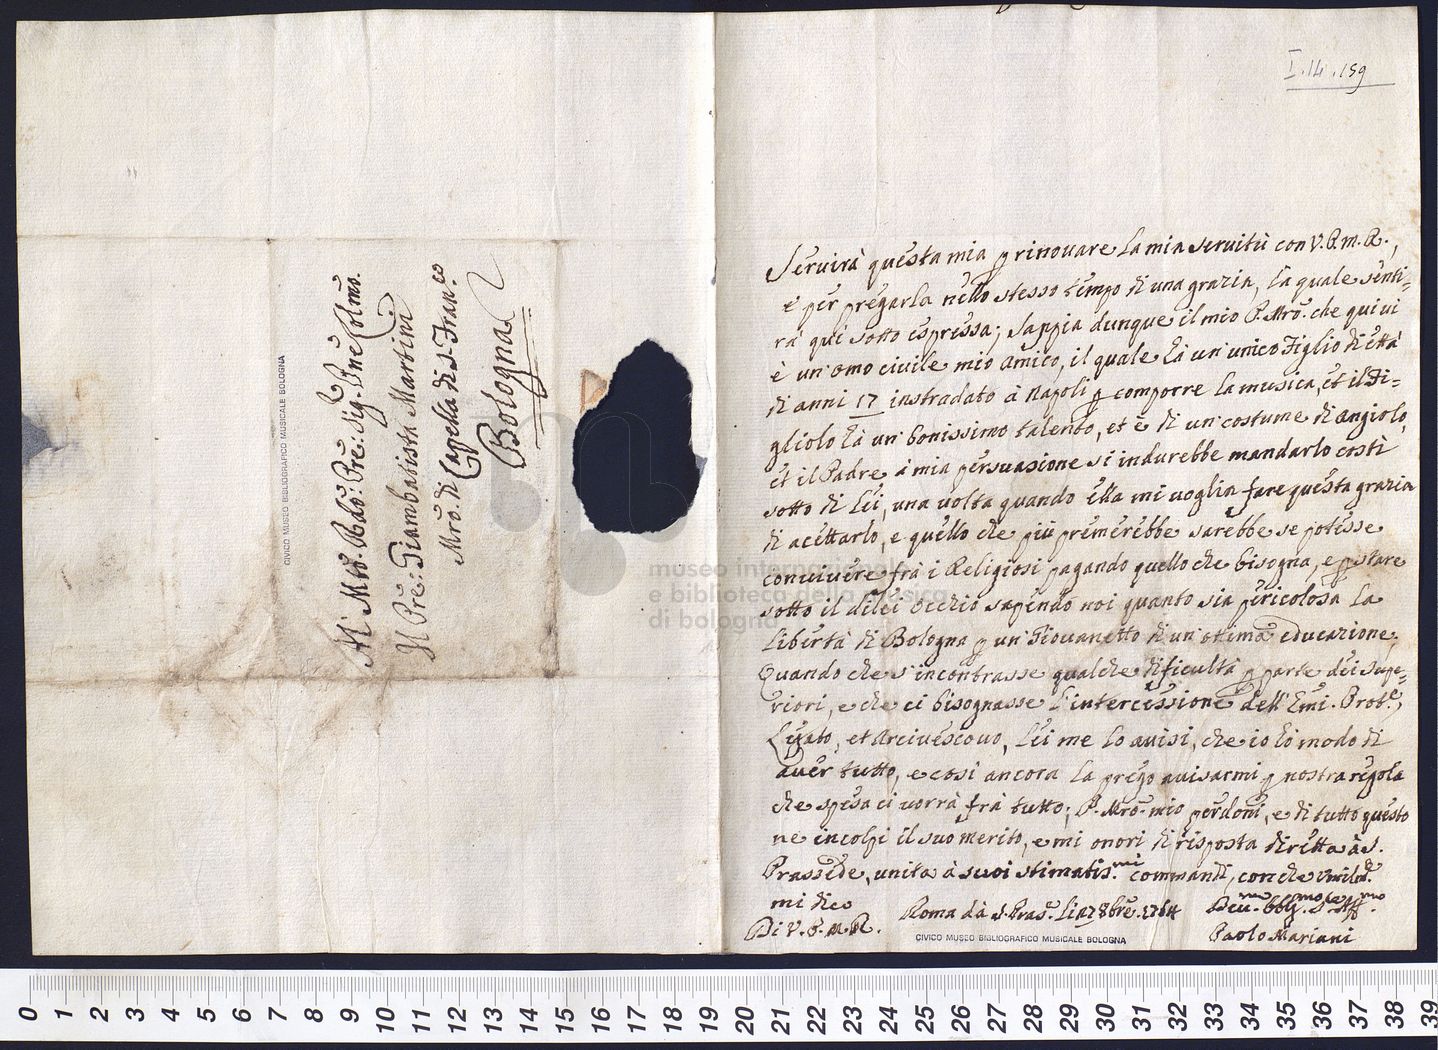 I.14.159
Servirà questa mia p rinovare la mia servitù con V.P.m.R.,
e per pregarla nello stesso tempo di una grazia, la quale senti=
rà qui sotto espressa; sappia dunque il mio P. Mro. che quivi
è un'omo civile mio amico, il quale hà un'unico Figlio di età
di anni 17 instradato à Napoli p comporre la musica, et il Fi=
gliolo hà un bonissimo talento, et è di un costume di angiolo,
et il Padre à mia persuasione si indurebbe mandarlo costì
sotto di Lei, una volta quando ella mi voglia fare questa grazia
di acettarlo, e quello che più premerebbe sarebbe se potesse
convivere frà i Religiosi pagando quello che bisogna, e p stare
sotto il di lei occhio sapendo noi quanto sia pericolosa la
libertà di Bologna p un Giovanetto di un'ottima educazione,
Quando che s'incontrasse qualche dificultà p parte dei supe=
riori, e che ci bisognasse l'intercessione dell'Emi.
Legato, et Arcivescovo, Lei me lo avisi, che io hò modo di
aver tutto, e così ancora la prego avisarmi p nostra regola
che spesa ci vorrà frà tutto; P. Mro. mio perdoni, e di tutto questo
ne incolpi il suo merito, e mi onori di risposta diretta à S.
Prassede, unita à suoi stimatis.mi commandi, con che
mi dico
Di V.P.M.R. Roma dà S. Pras. li 27 8bre. 1764
Paolo Mariani
CIVICO MUSEO BIBLIOGRAFICO MUSICALE BOLOGNA
Al Mto. Rdo: Pre: Sig. Pne Colmo.
Il Pre: Giambatista Martini
Mro. di Capella di S. Fran.co
Bologna
CIVICO MUSEO BIBLIOGRAFICO MUSICALE BOLOGNA
museo internazionale
e biblioteca della musica
di bologna
0 1 2 3 4 5 6 7 8 9 10 11 12 13 14 15 16 17 18 19 20 21 22 23 24 25 26 27 28 29 30 31 32 33 34 35 36 37 38 39